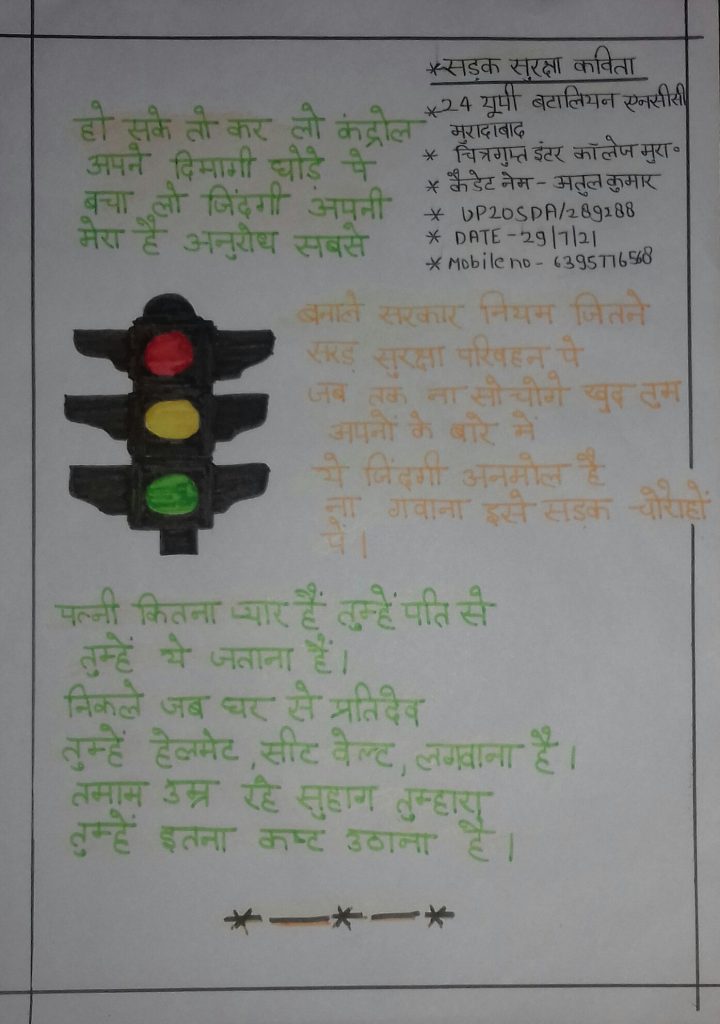 *सड़क सुरक्षा कविता
*24 यूपी बटालियन एनसीसी
मुरादाबाद
* चित्रगुप्त इंटर कॉलेज मुरा॰
* कैडेट नेम - अतुल कुमार
* UP20SDA/289288
* DATE - 29/7/21
* Mobile no - 6395776568
हो सके तो कर लो कंट्रोल
अपने दिमागी घोड़े पे
बचा लो जिंदगी अपनी
मेरा है अनुरोध सबसे
बनाले सरकार नियम जितने
सड़ सुरक्षा परिवहन पे
जब तक ना सोचोगे खुद तुम
अपनों के बारे में
ये जिंदगी अनमोल है
ना गवाना इसे सड़क चोराहों
पें।
पत्नी कितना प्यार हैं तुम्हें पति से
तुम्हें ये जताना हैं।
निकले जब घर से प्रतिदेव
तुम्हें हेलमेट, सीट वेल्ट, लगवाना है।
तमाम उम्र रहे सुहाग तुम्हारा
तुम्हें इतना कष्ट उठाना है।